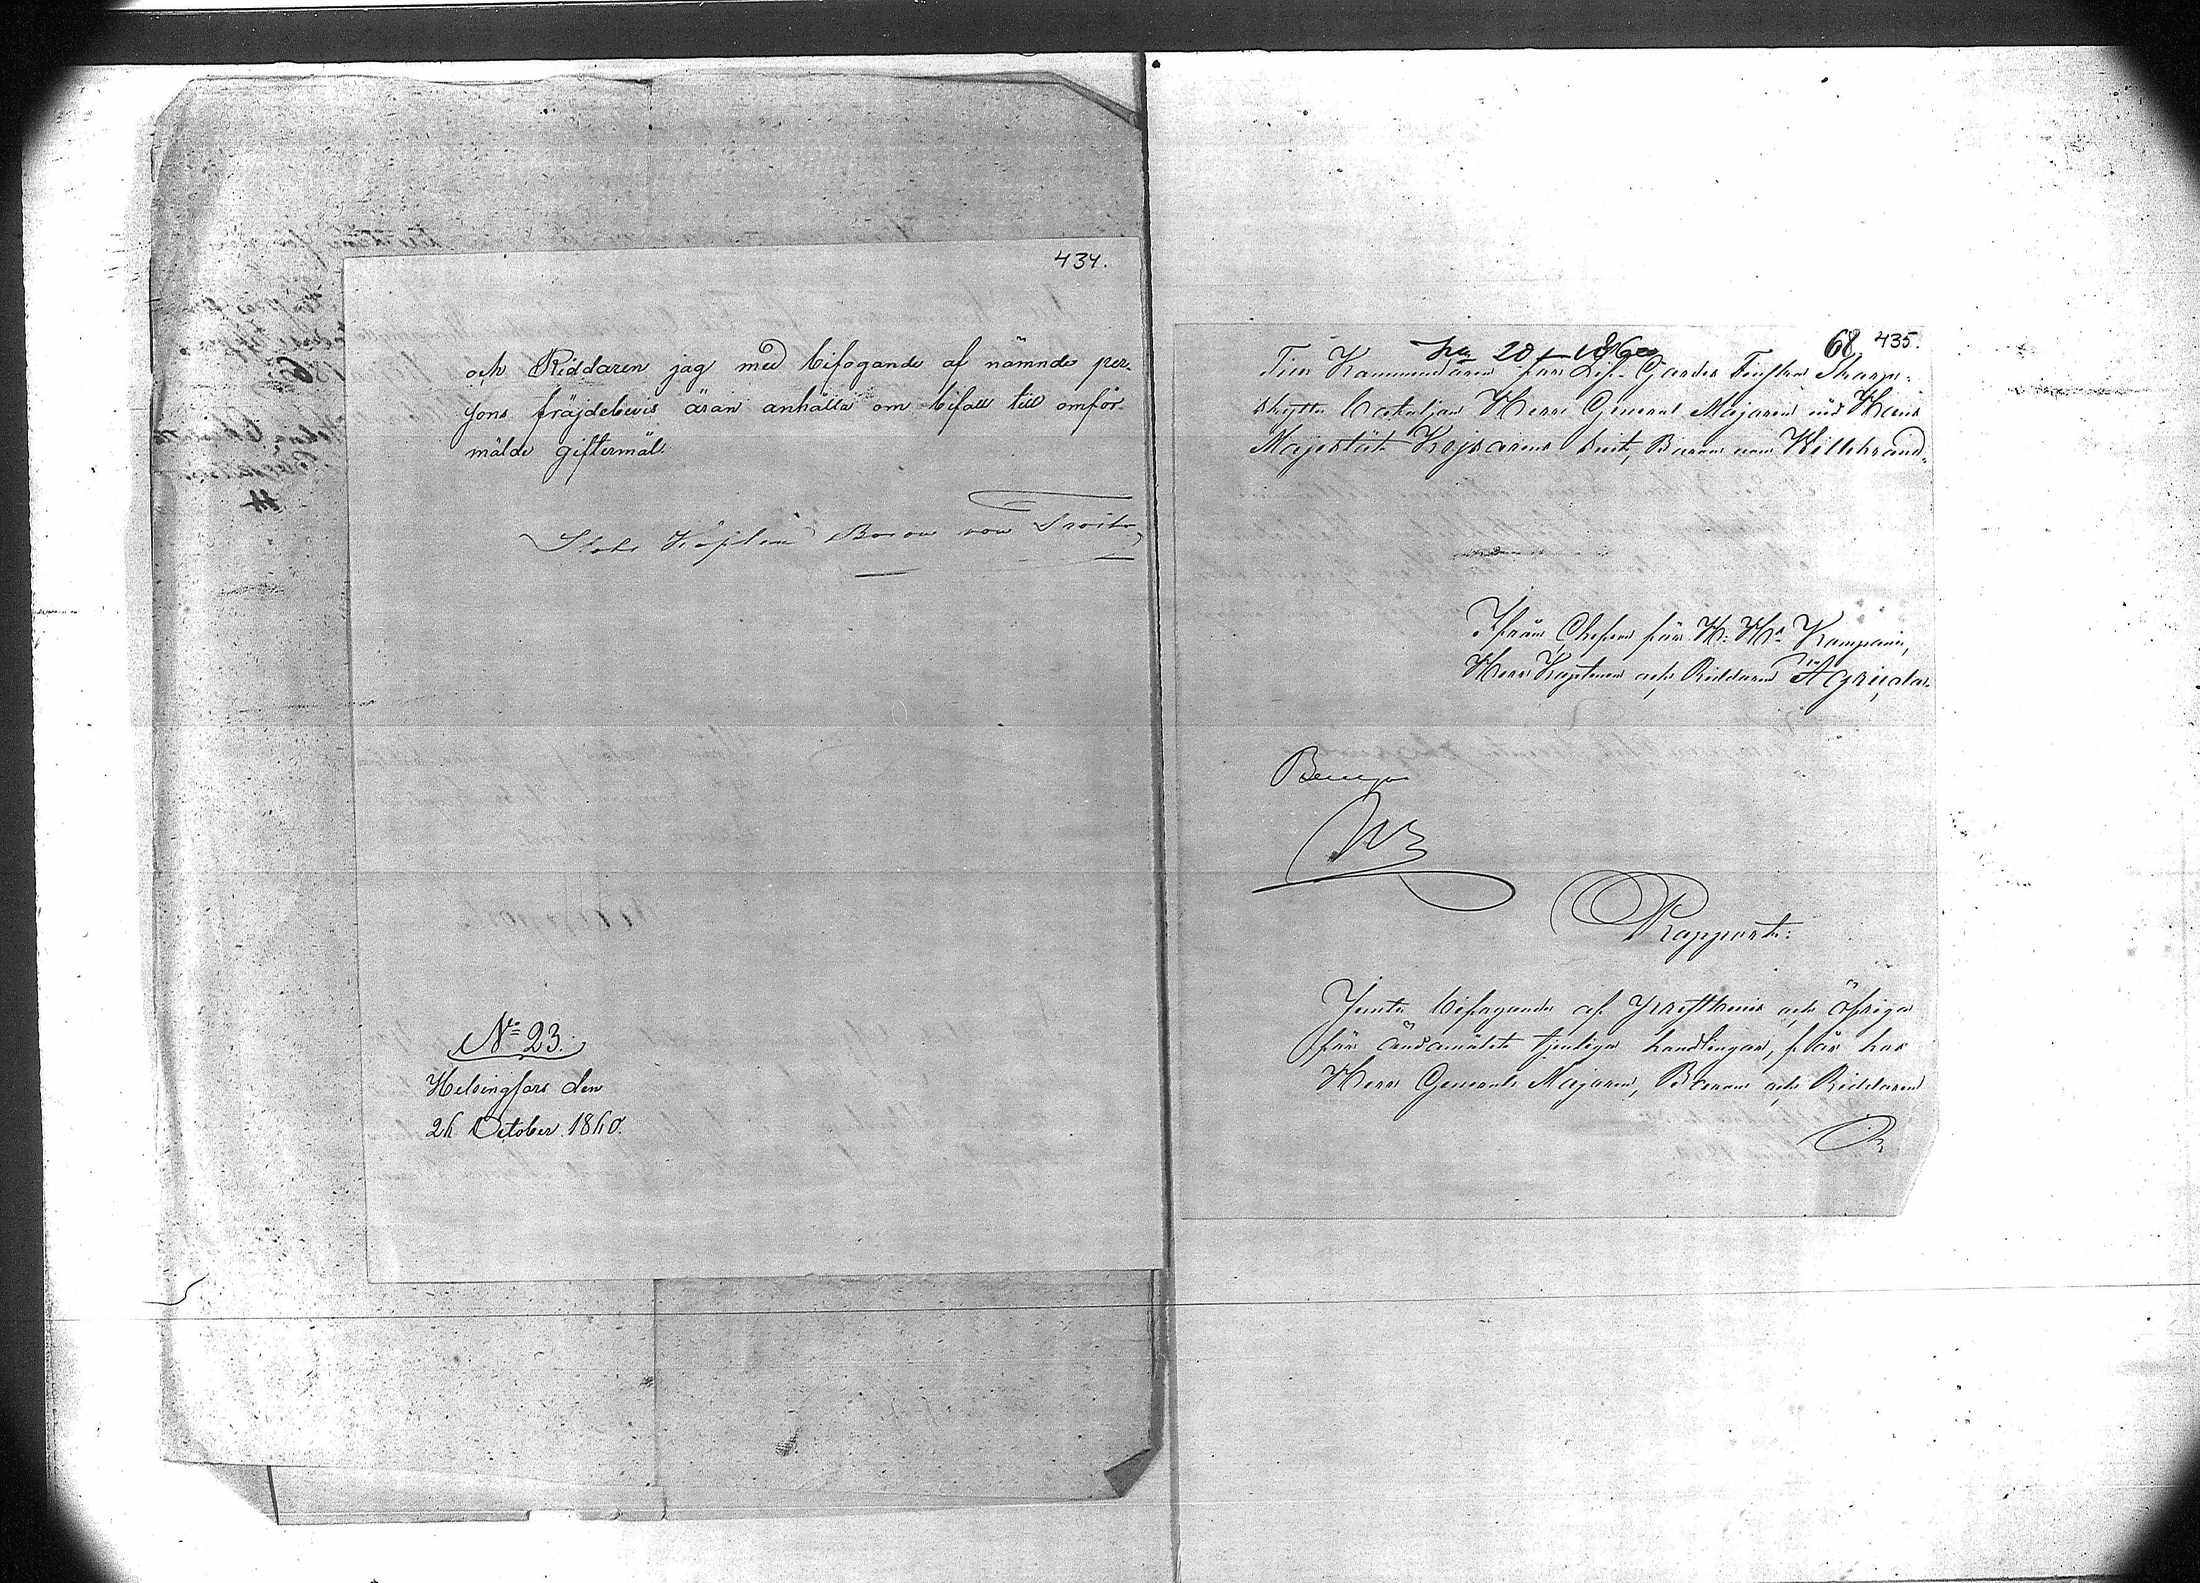 434.
och Riddaren jag med bifogande af nämnde per-
sons fräjdebevis äran anhålla om bifall till omför-
mälde giftermål.
Stabs Kapten Baron von Troil
No 23.
Helsingfors den
24 October 1860.
68 435.
Till Kommendören för Lif-Gardes Finska Skarp-
skytte Bataljon Herr General Majoren vid Hans
Majestät Kejsarens Suit, Baron von Willebrand.
Ifrån Chefen för H. Hs Kompani,
Herr Kapten och Riddaren Ågricola.
Rapport:
Jemte bifogande af prestbevis och öfriga
för ändamålet tjenliga handlingar, får hos
Herr General Majoren, Baron och Riddaren